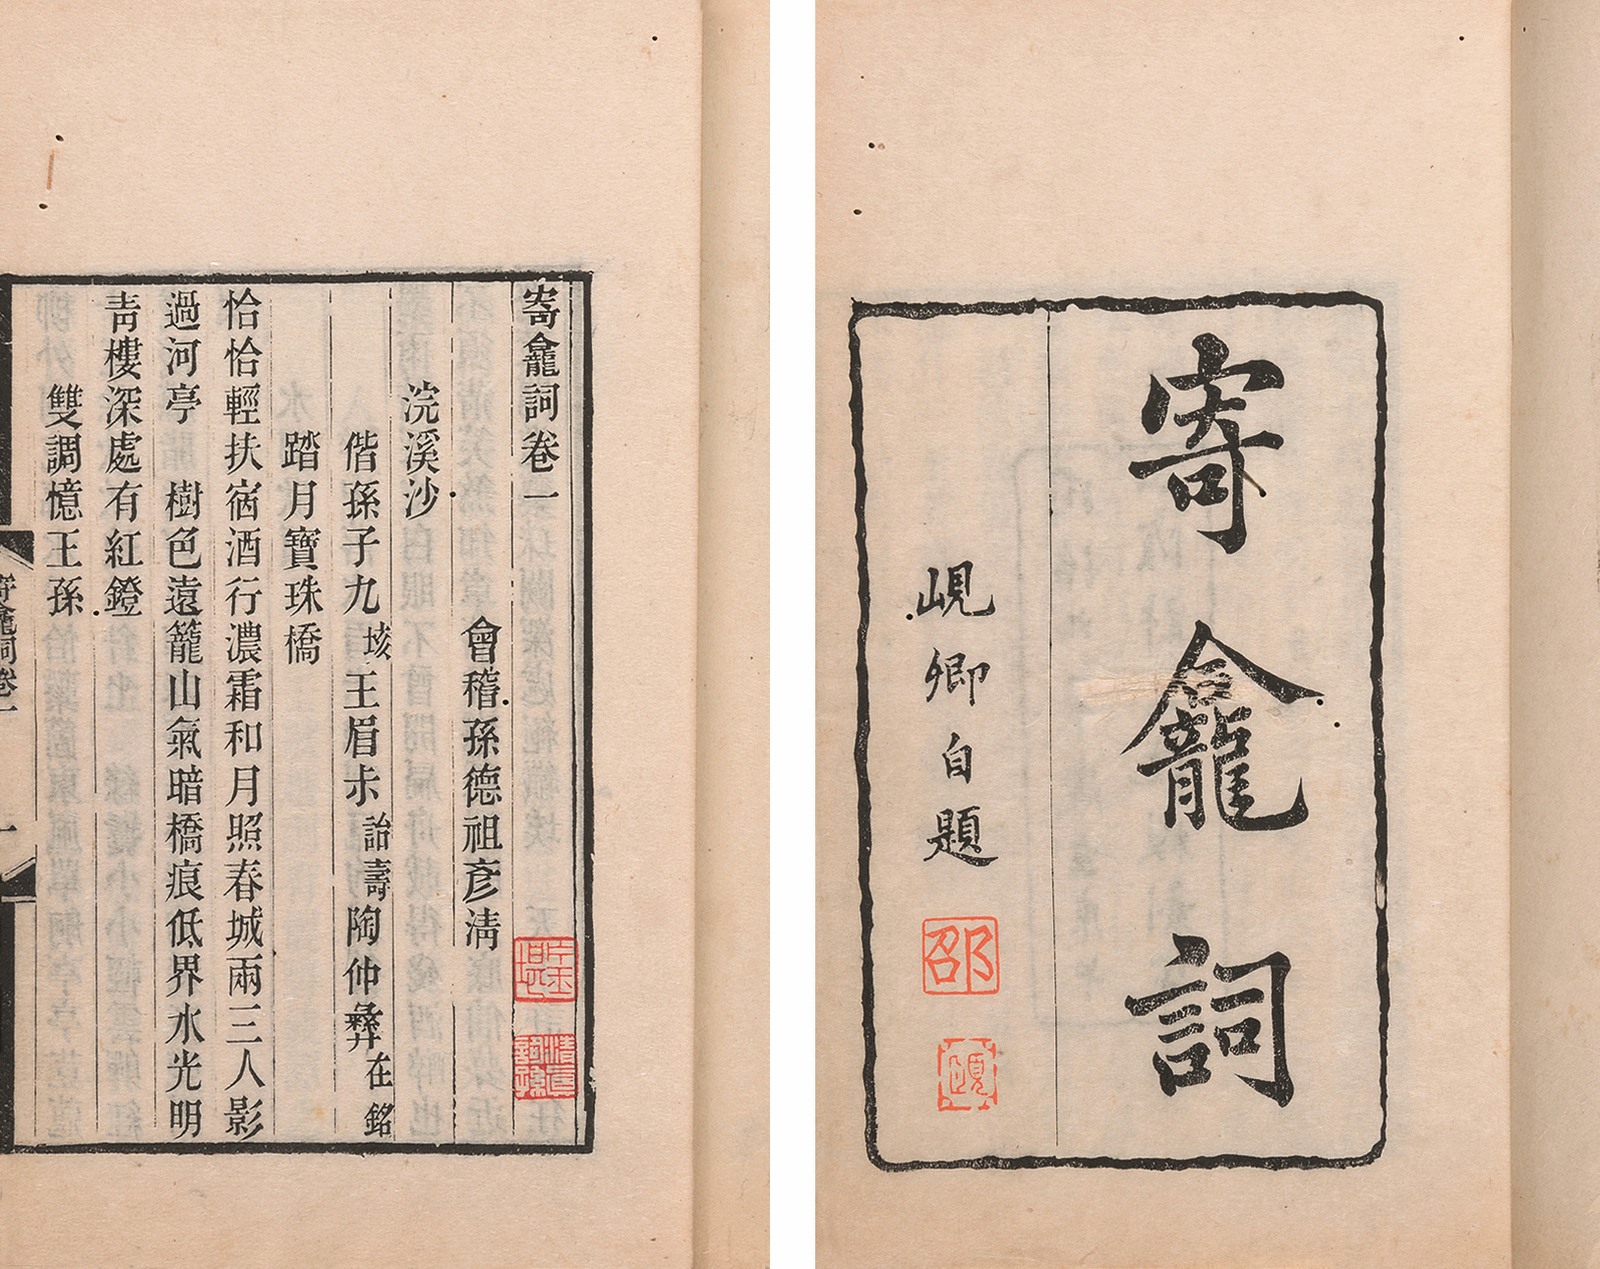 寄龕詞
峴卿自題
邵
寄龕詞卷一
會稽孫德祖彥清
浣溪沙
偕孫子九垓王眉尗詒壽陶仲彝在銘
踏月寶珠橋
恰恰輕扶宿酒行濃霜和月照春城兩三人影
過河亭　樹色遠籠山氣暗橋痕低界水光明
靑樓深處有紅鐙
雙調憶王孫
寄龕詞卷一
一